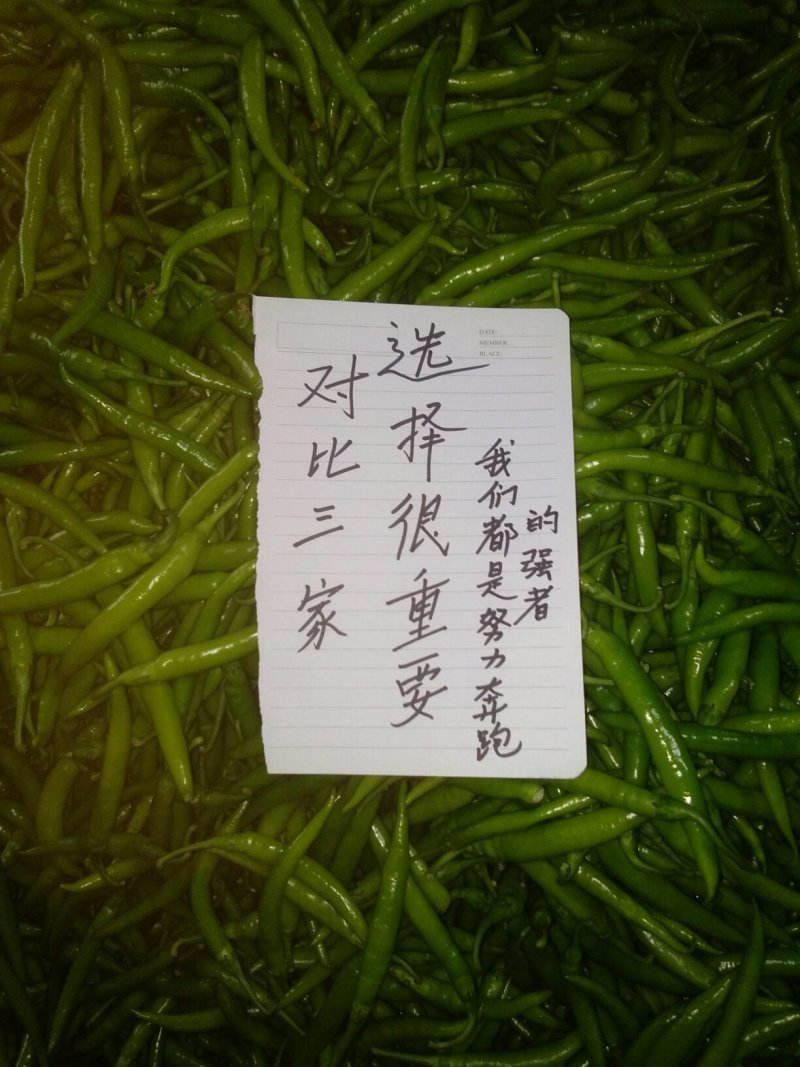 DATE:
MEMBER:
BLACE:
对比三家
选择很重要
我们都是努力奔跑
的强者